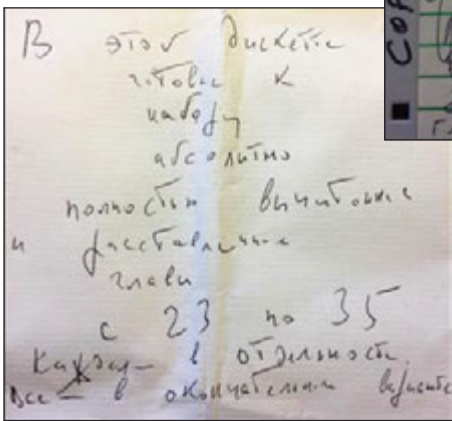 В этой дискете
готовы к
набору
абсолютно
полностью вычитанные
и расставленные
главы
с 23 по 35
Каждая — в отдельности.
Все — в окончательном варианте